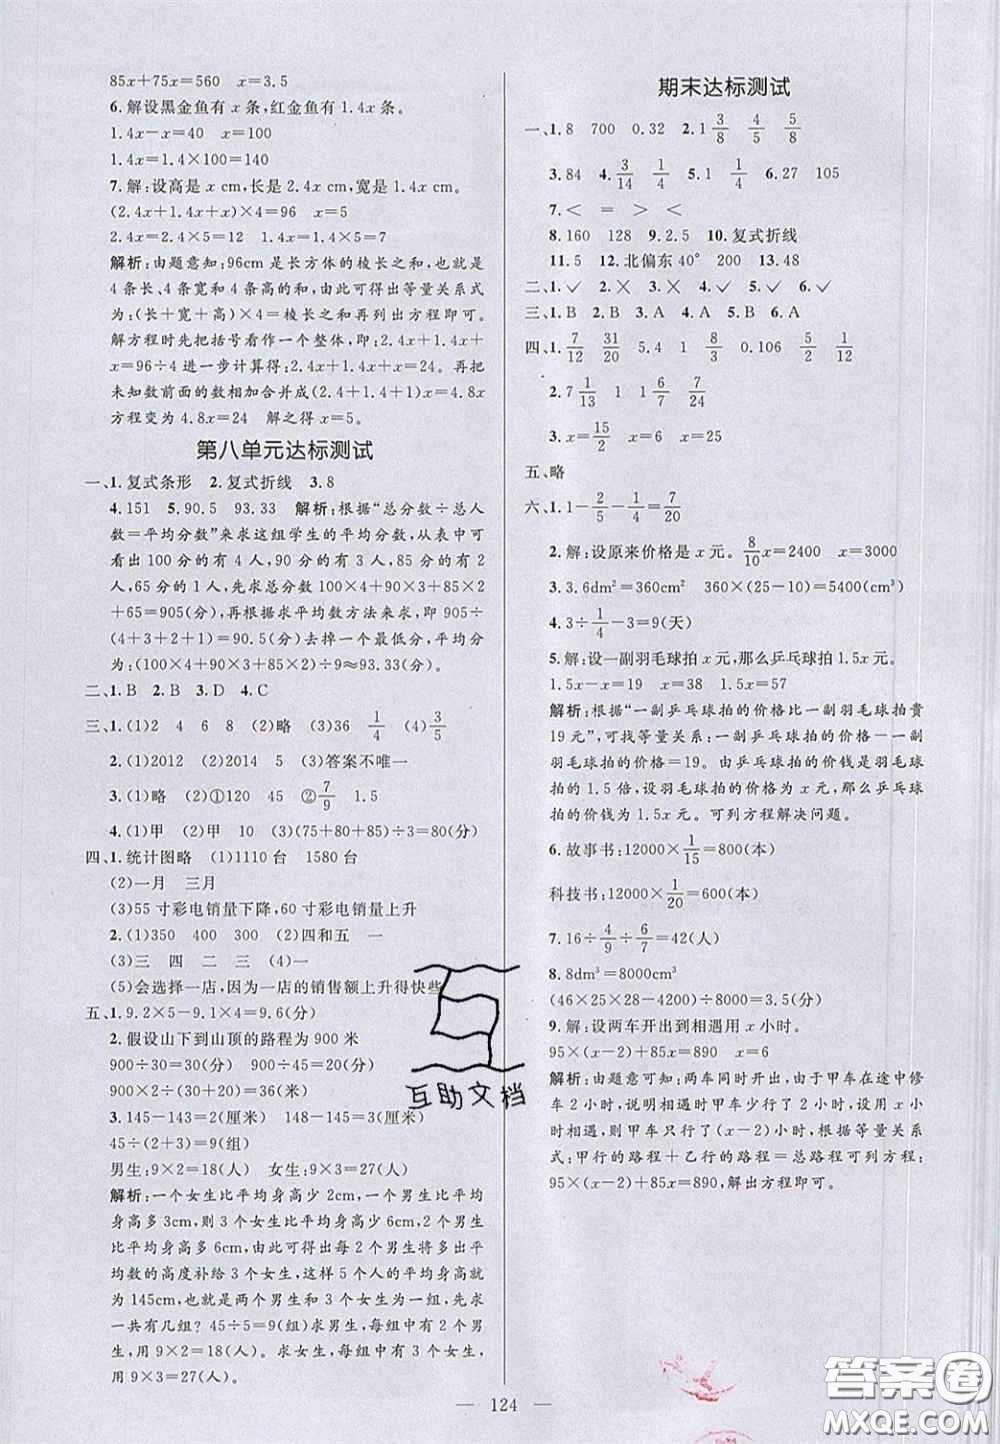 85x+75x=560　x=3.5
6.解设黑金鱼有 x 条,红金鱼有 1.4x 条。
1.4x－x=40　x=100
1.4x=1.4×100=140
7.解:设高是 x cm,长是 2.4x cm,宽是 1.4x cm。
(2.4x+1.4x+x)×4=96　x=5
2.4x=2.4×5=12　1.4x=1.4×5=7
解析:由题意知:96cm 是长方体的棱长之和,也就是
4 条长、4 条宽和 4 条高的和,由此可得出等量关系式
为:(长＋宽＋高)×4=棱长之和再列出方程即可。
解方程时先把括号看作一个整体,即:2.4x+1.4x+
x=96÷4 进一步计算得:2.4x+1.4x+x=24。再把
未知数前面的数相加合并成(2.4+1.4+1)x=4.8x
方程变为 4.8x=24　解之得 x=5。
第八单元达标测试
一、1.复式条形　2.复式折线　3.8
4.151　5.90.5　93.33　解析:根据“总分数÷总人
数=平均分数”来求这组学生的平均分数,从表中可
看出 100 分的有 4 人,90 分的有 3 人,85 分的有 2
人,65 分的 1 人,先求总分数 100×4+90×3+85×2
+65=905(分),再根据求平均数方法来求,即 905÷
(4+3+2+1)=90.5(分)去掉一个最低分,平均分
为:(100×4+90×3+85×2)÷9≈93.33(分)。
二、1.B　2.B　3.D　4.C
三、1.(1)2　4　6　8　(2)略　(3)36　1/4　(4)3/5
2.(1)2012　(2)2014　5　(3)答案不唯一
3.(1)略　(2)①120　45　②7/9　1.5
4.(1)甲　(2)甲　10　(3)(75+80+85)÷3=80(分)
四、1.统计图略　(1)1110 台　1580 台
(2)一月　三月
(3)55 寸彩电销量下降,60 寸彩电销量上升
2.(1)350　400　300　(2)四和五　一
(3)三　四　二　三　(4)一
(5)会选择一店,因为一店的销售额上升得快些
五、1.9.2×5－9.1×4=9.6(分)
2.假设山下到山顶的路程为 900 米
900÷30=30(分)　900÷20=45(分)
900×2÷(30+20)=36(米)
3.145－143=2(厘米)　148－145=3(厘米)
45÷(2+3)=9(组)
男生:9×2=18(人)　女生:9×3=27(人)
解析:一个女生比平均身高少 2cm,一个男生比平均
身高多 3cm,则 3 个女生比平均身高少 6cm,2 个男生
比平均身高多 6cm,由此得出每 2 个男生将多出平
均数的高度补给 3 个女生，这样 5 个人的平均身高
为 145cm,也就是两个男生和 3 个女生为一组,先求
一共有几组? 45÷5=9(组)求男生，每组中有 2 个男
生,用 9×2=18(人)。求女生，每组中有 3 个女生,
用 9×3=27(人)。
期末达标测试
一、1.8　700　0.32　2.1　3/8　4/5　5/8
3.84　4.3/14　1/4　5.1　1/4　6.27　105
7.＜　＝　＞　＜
8.160　128　9.2.5　10.复式折线
11.5　12.北偏东 40°　200　13.48
二、1.✓　2.×　3.×　4.×　5.✓　6.✓
三、1.B　2.B　3.A　4.A　5.B　6.A
四、1.7/12　31/20　5.4　1　8/3　0.106　5/2　1/12
2.7 1/13　1　1 6/7　7/24
3.x=15/2　x=6　x=25
五、略
六、1.1－2/5－1/4=7/20
2.解:设原来价格是 x 元。8/10x=2400　x=3000
3.3.6dm²=360cm²　360×(25－10)=5400(cm³)
4.3÷1/4－3=9(天)
5.解:设一副羽毛球拍 x 元,那么乒乓球拍 1.5x 元。
1.5x－x=19　x=38　1.5x=57
解析:根据“一副乒乓球拍的价格比一副羽毛球拍贵
19 元”,可找等量关系:一副乒乓球拍的价格－一副
羽毛球拍的价格=19。由乒乓球拍的价钱是羽毛球
拍的 1.5 倍,设羽毛球拍的价钱为 x 元,那么乒乓球
拍的价钱为 1.5x 元。可列方程解决问题。
6.故事书:12000×1/15=800(本)
科技书:12000×1/20=600(本)
7.16÷4/9÷6/7=42(人)
8.8dm³=8000cm³
(46×25×28－4200)÷8000=3.5(分)
9.解:设两车开出到相遇用 x 小时。
95×(x－2)+85x=890　x=6
解析:由题意可知:两车同时开出,由于甲车在途中修
车 2 小时,说明相遇时甲车少行了 2 小时,设用 x 小
时相遇,则甲车只行了(x－2)小时,根据等量关系
式:甲行的路程＋乙行的路程＝总路程可列方程:
95×(x－2)+85x=890,解出方程即可。
互助文档
124
答案圈
MXQE.COM